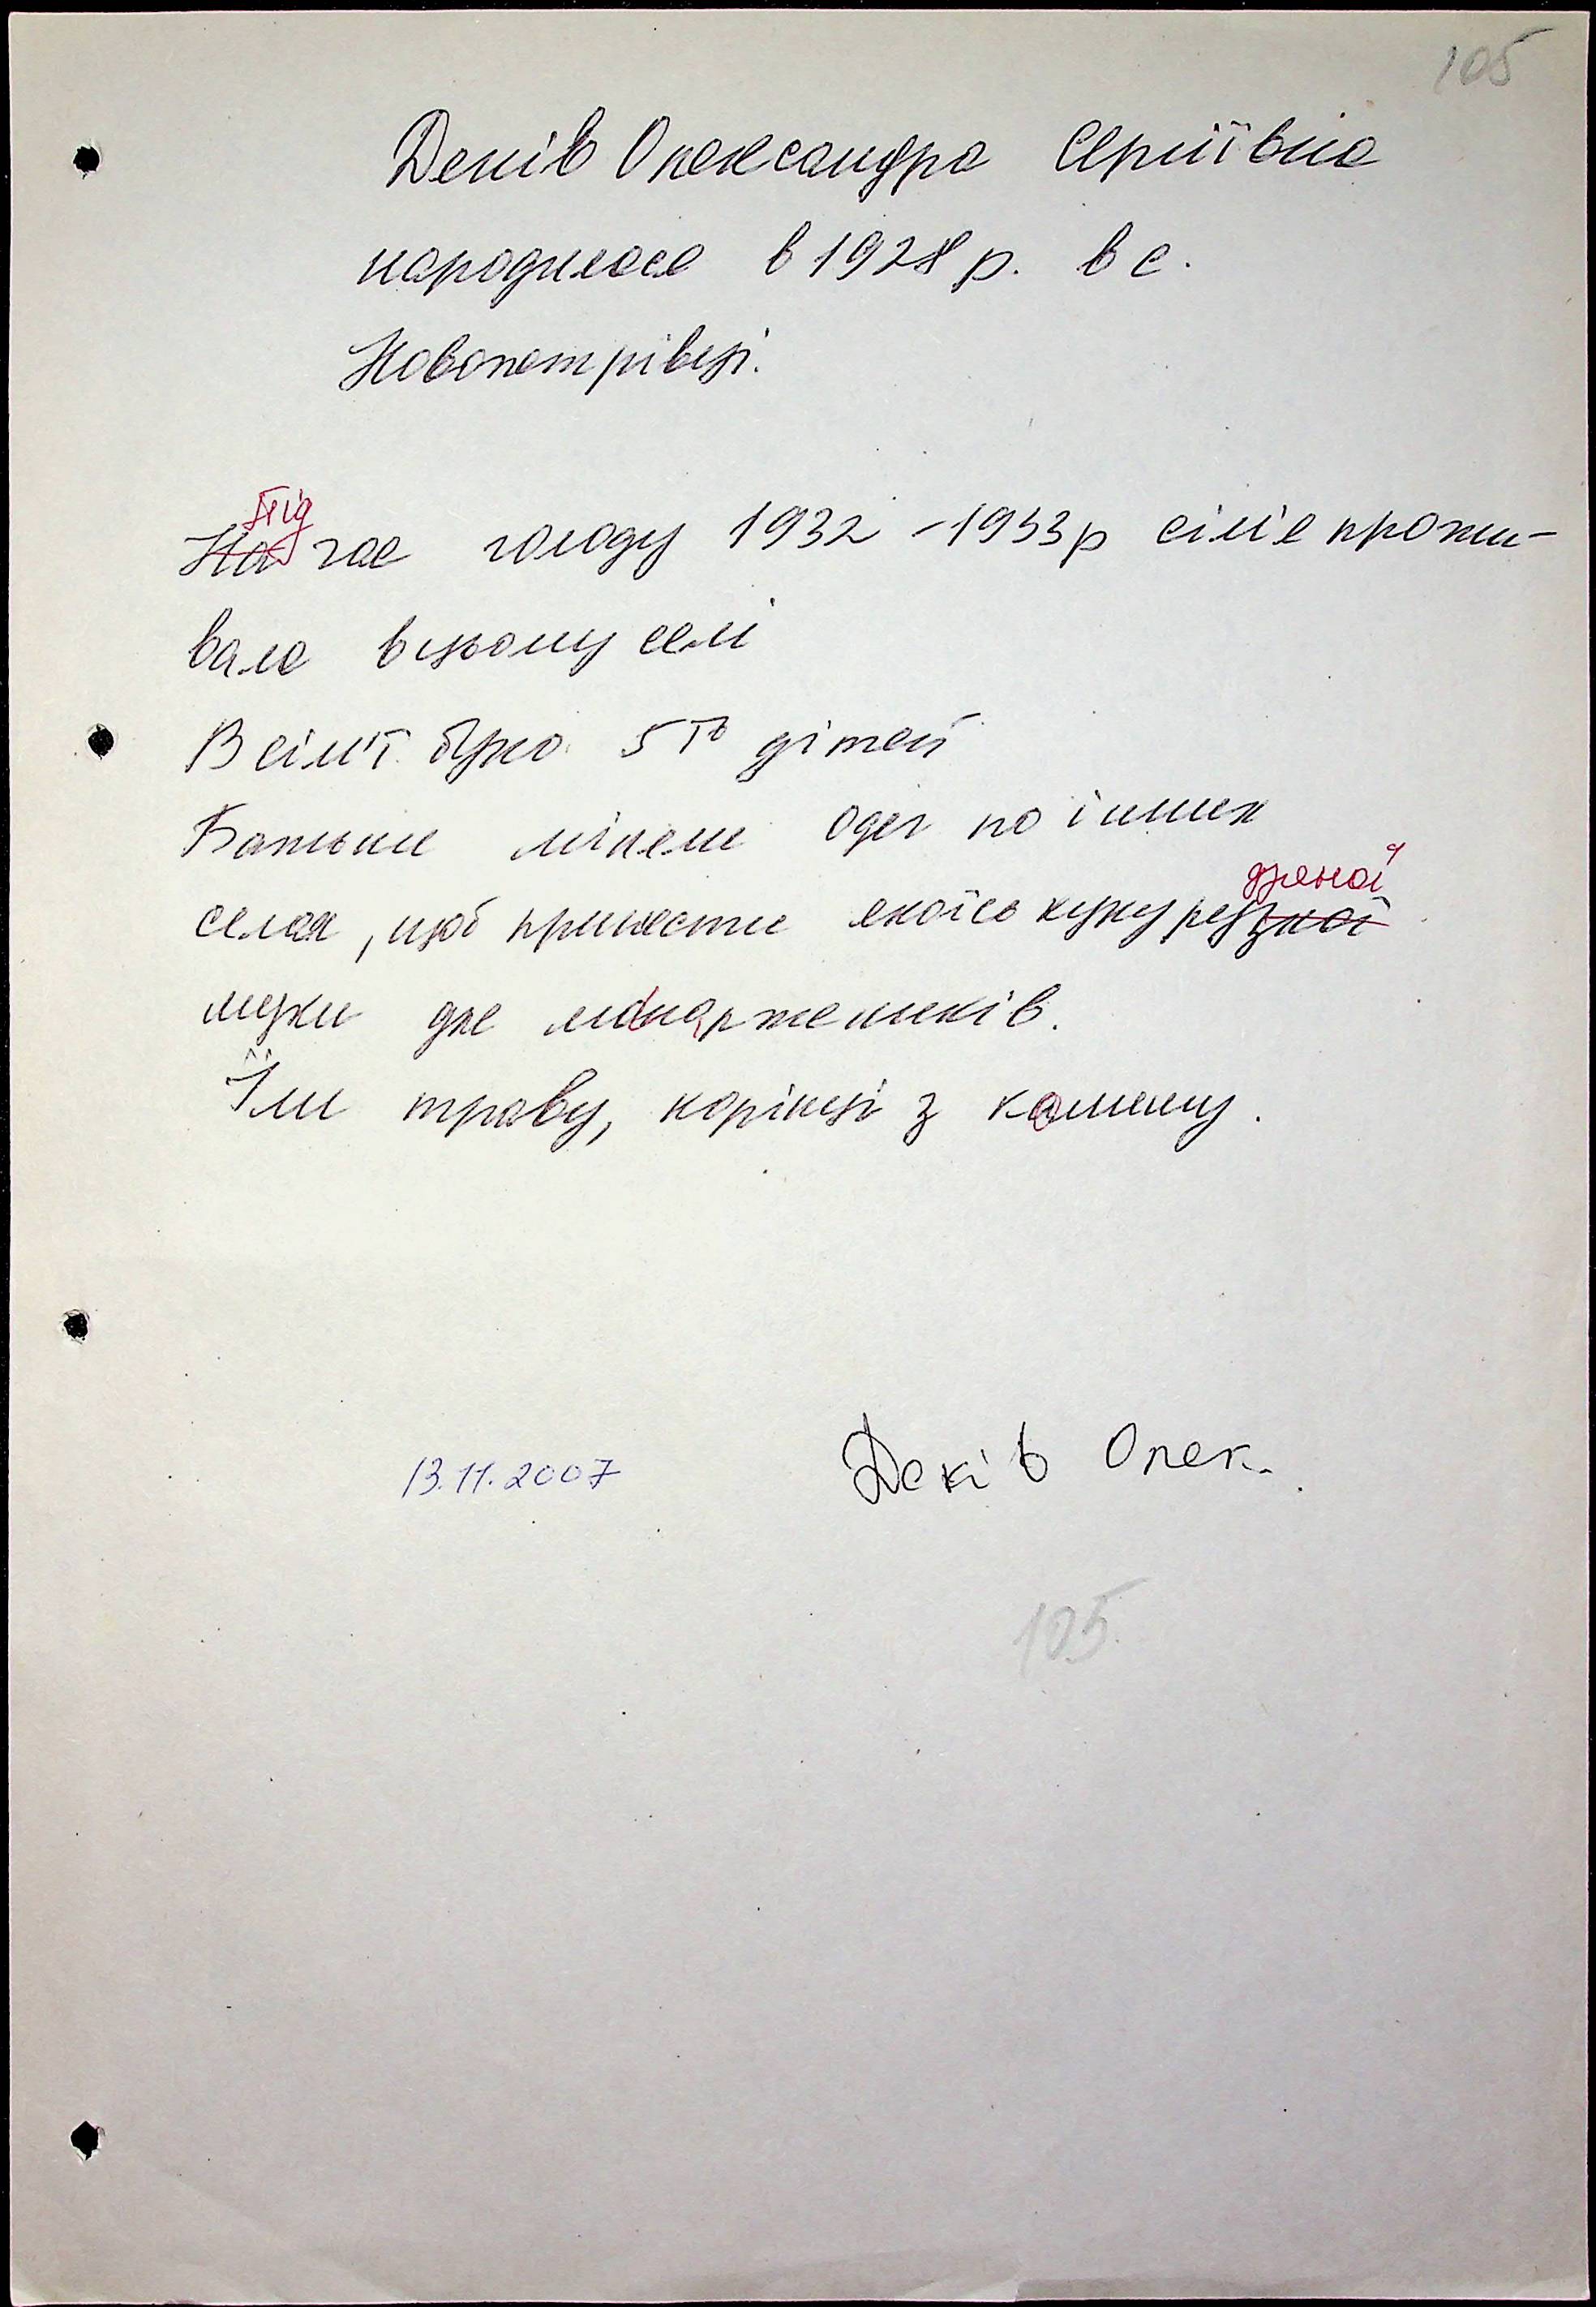 105
Деків Олександра Сергіївна
народилася в 1928 р. в с.
Новопетрівці.
Під
На час голоду 1932 - 1933 р сім'я прожи-
вала в цьому селі
В сім'ї було 5ть дітей
Батьки міняли одяг по інших
дзяної
селах, щоб принести якоїсь кукурузної
муки для
Їли траву, корінці з комишу.
13.11.2007 Деків Олек.
105